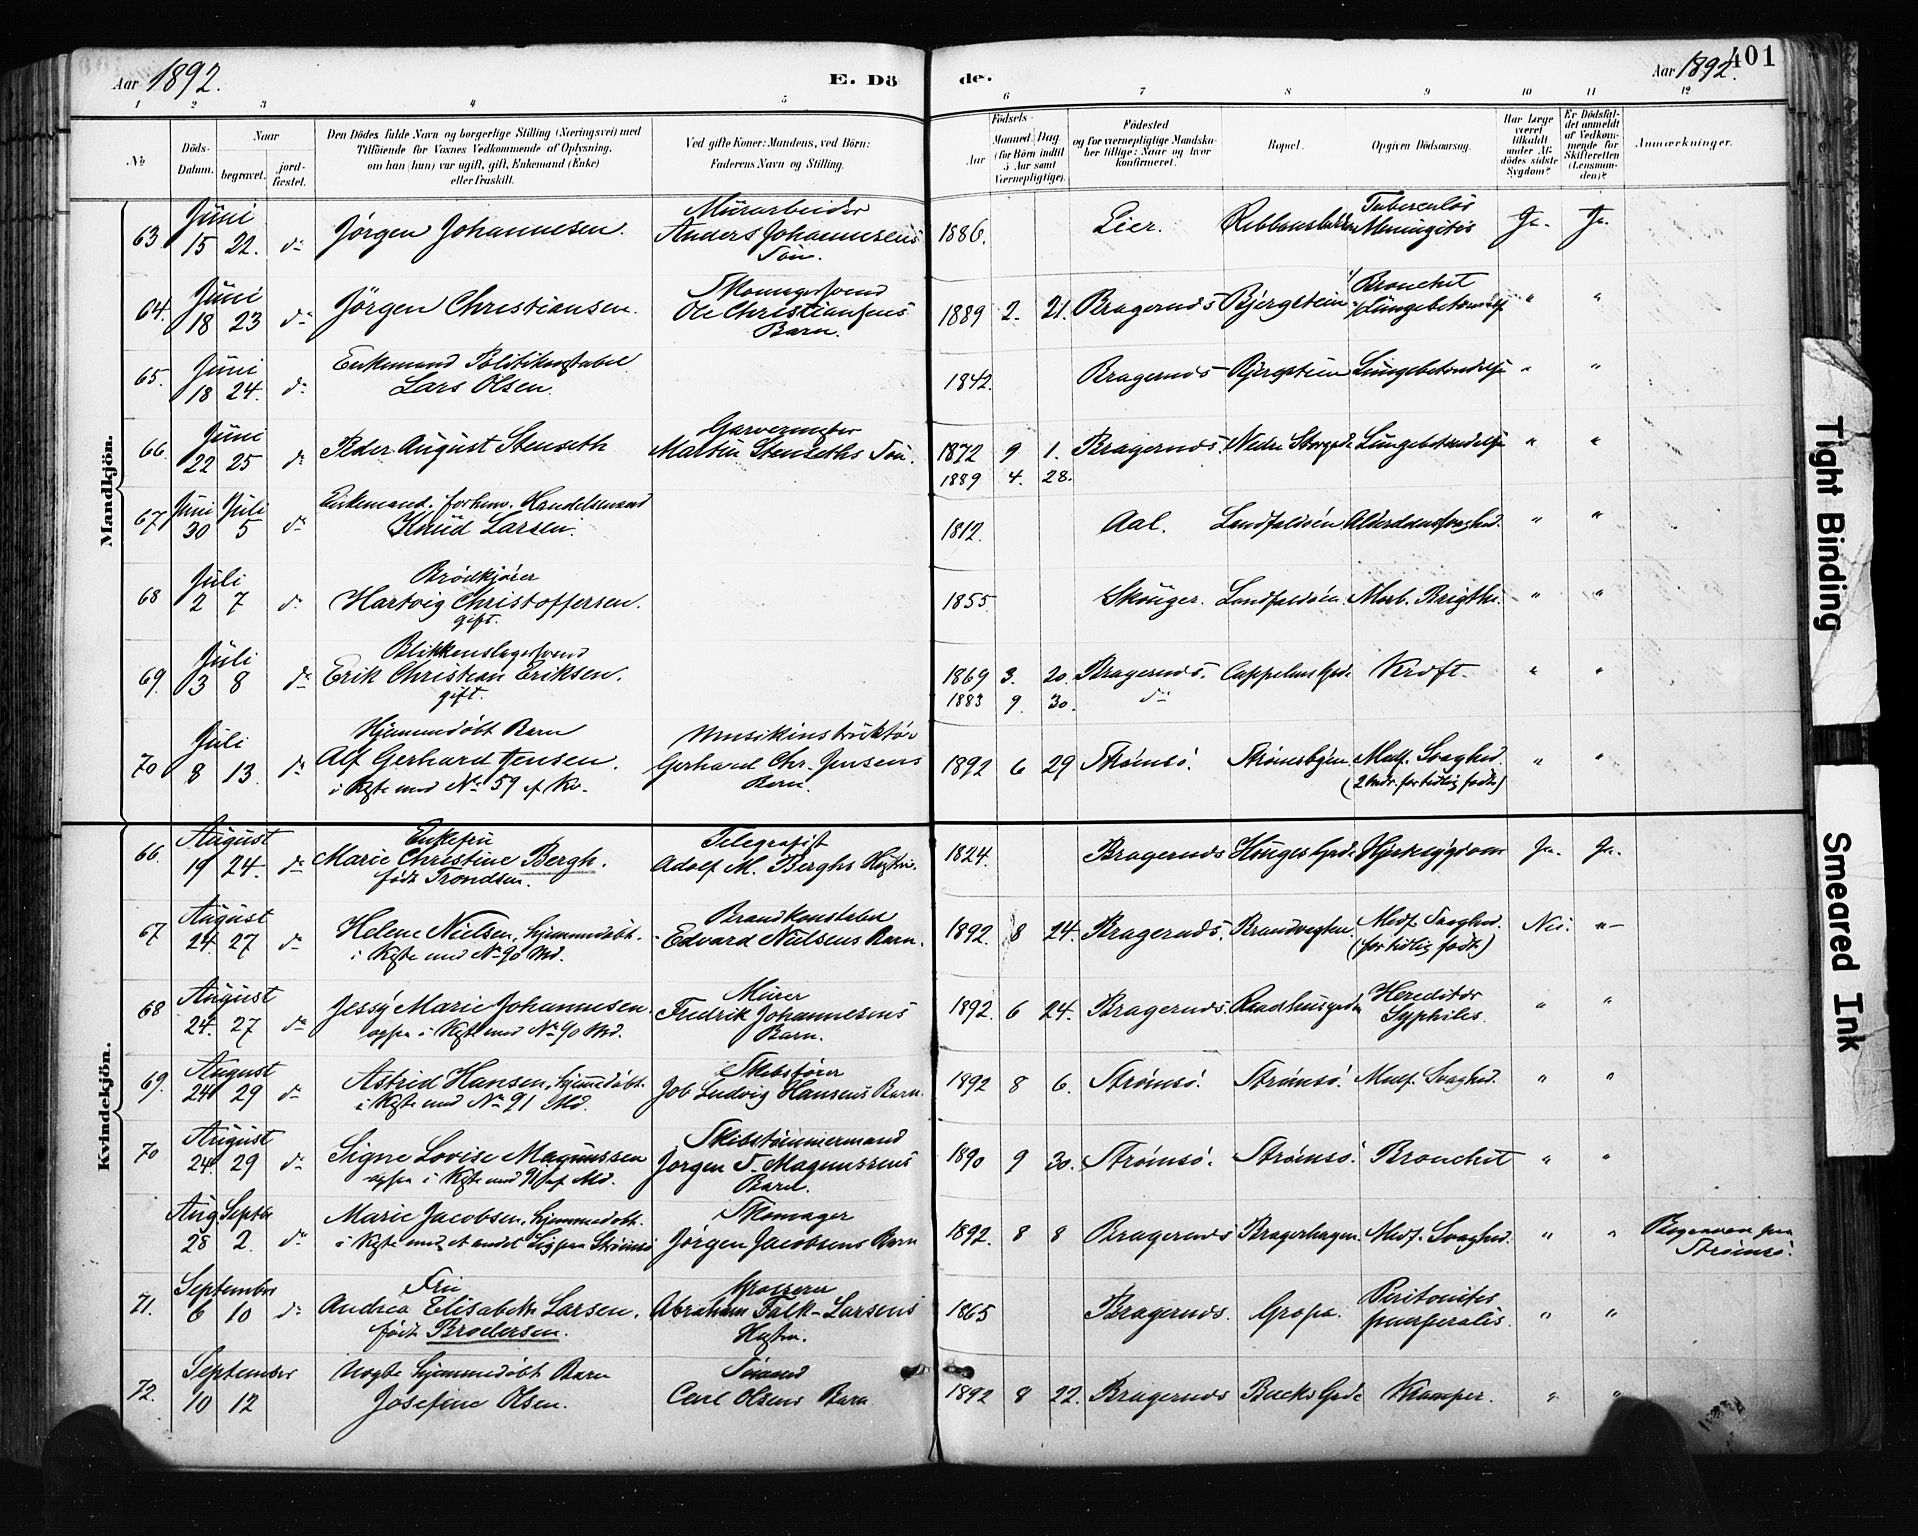 Aar 1892.
E. Dö
de.
Aar 1892.
401
1 2 3 4 5 6 7 8 9 10 11 12
No.
Döds-Datum.
Naar
begravet.
jord-fæstet.
Den Dödes fulde Navn og borgerlige Stilling (Næringsvei) med
Tilföiende for Voxnes Vedkommende af Oplysning,
om han (hun) var ugift, gift, Enkemand (Enke)
eller fraskilt.
Ved gifte Koner: Mandens, ved Börn:
Faderens Navn og Stilling.
Födsels-
Aar
Maaned. Dag
(for Börn indtil
5 Aar samt
Værnepligtige).
Födested
og for værnepligtige Mandska-
ber tillige: Naar og hvor
konfirmeret.
Bopæl.
Opgiven Dödsaarsag.
Har Læge
været
tilkaldt
under Af-
dödes sidste
Sygdom?
Er Dödsfal-
det anmeldt
af Vedkom-
mende for
Skifteretten
(Lensman-
den)?
Anmærkninger.
Mandkjön.
63. Juni 15 22. do Jørgen Johannesen. Murarbeider Anders Johannesens Søn. 1886. Lier. Tuberculøs Meningitis Ja. Ja.
64. Juni 18 23 do Jörgen Christiansen. Skomagersvend Ole Christiansens Barn. 1889 2. 21. Bragernæs Bjergstein Bronchit Lungebetændelse " "
65. Juni 18 24. do Enkemand Politikonstabel Lars Olsen. 1842. Bragernæs Bjergstein Lungebetændelse " "
66. Juni 22 25 do Peder August Stenseth Garvermester Martin Stenseths Søn. 1872 9 1. Bragernæs. Nedre Storgade Lungebetændelse " "
1889 4. 28.
67. Juni 30 Juli 5 do Enkemand. forhenv. Handelsmand Knud Larsen. 1812. Aal. Landfaldøen Alderdomssvaghed. " "
68 Juli 2 7 do Brødkjører Hartvig Christoffersen. gift. 1855 Skouger. Landfaldøen. Morb. Brigthi. " "
69. Juli 3 8 do Blikkenslagersvend Erik Christian Eriksen. gift. 1869 3. 20. Bragernæs. Cappelens Gade Kræft. " "
1883 9. 30. do
70 Juli 8 13. do Hjemmedøbt Barn Alf Gerhard Jensen. i Kiste med No 59 af Kv. Musikinstruktør Gerhard Chr. Jensens Barn. 1892 6 29 Strømsø. Medf. Svaghed. (2 Mdr. for tidlig født) " "
Kvindekjön.
66. August 19 24. do Enkefru Marie Christine Bergh. født Trondsen. Telegrafist Adolf M. Berghs Hustru. 1824. Bragernæs Hauges Gade Hjertesygdom Ja. Ja.
67. August 24. 27 do Helene Nielsen, hjemmedøbt. i Kiste med No 90 Md. Brandkonstabel Edvard Nielsens Barn. 1892. 8 24. Bragernæs. Brandvagten Medf. Svaghed. (for tidlig født) Nei. "
68 August 24. 27 do Jessy Marie Johannesen. ogsaa i Kiste med No 90 Md. Murer Fredrik Johannesens Barn. 1892. 6 24. Bragernæs. Raadhusgaden Hereditær Syphilis. " "
69. August 24 29 do Astrid Hansen, hjemmedøbt. i Kiste med No 91 Md. Skibsfører Job Ludvig Hansens Barn. 1892 8 6. Strømsø. Strømsø. Medf. Svaghed. " "
70 August 24. 29 do Signe Lovise Magnussen ogsaa i Kiste med 91 af Md. Skibstømmermand Jørgen S. Magnussens Barn. 1890 9 30. Strømsø. Strømsø. Bronchit " "
Aug. 28 Septbr 2. do Marie Jacobsen, hjemmedøbt. i Kiste med et andet Lig paa Strømsø Skomager Jørgen Jacobsens Barn 1892. 8 8 Bragernæs Bragerhagen. Medf. Svaghed. " " Begraven paa Strømsø.
71. September 6 10 do Fru Andrea Elisabeth Larsen. født Brodersen. Grosserer Abraham Falk-Larsens Hustru. 1865 Bragernæs. Gropa. Peritonitis puerperalis. " "
72. September 10 12 Uægte hjemmedøbt Barn Josefine Olsen. Sømand Carl Olsens Barn 1892 8 22. Bragernæs Backs Gade Kramper. " "
Tight Binding
Smeared Ink